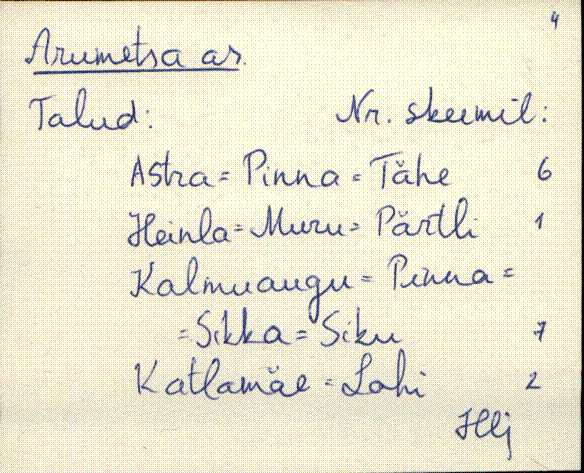 4
Arumetsa as.
Talud: Nr. skeemil:
Astra = Pinna = Tähe 6
Heinla = Muru = Pärtli 1
Kalmuaugu = Pinna =
= Sikka = Siku 7
Katlamäe = Lahi 2